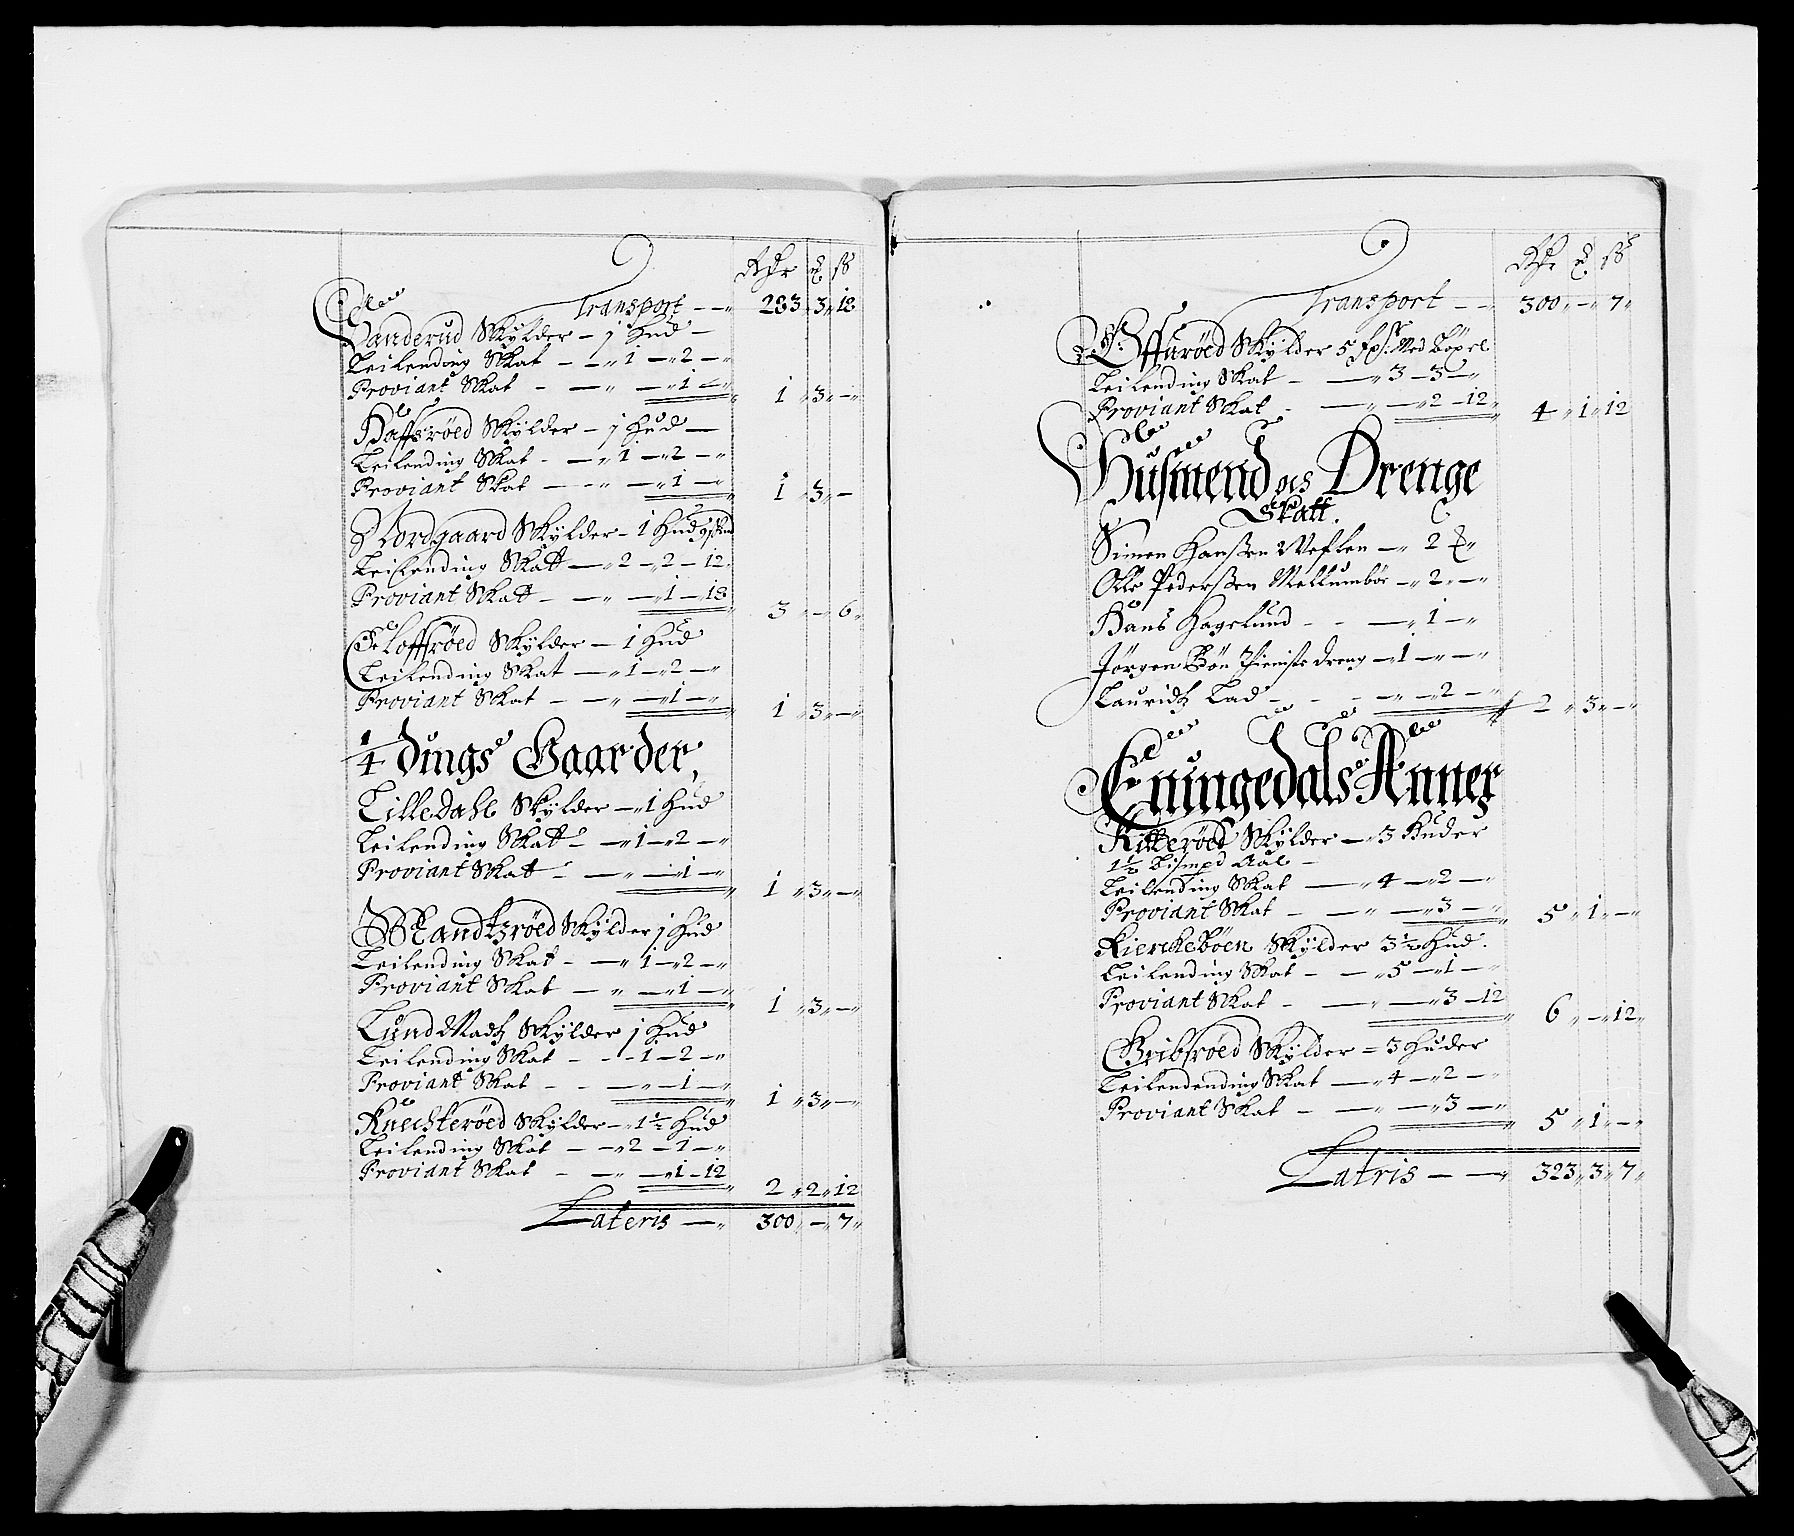 Rdr ʒ ß
Transport — — 283 „ 3 „ 18
Sanderud Skylder — j Hud —
Leilending Skat — — 1 — 2 —
Proviant Skat — — „ — 1 — 1 „ 3 „ —
Haffsröed Skylder — j Hud —
Leilending Skat - — 1 — 2 —
Proviant Skat — - „ — 1 — 1 „ 3 „ —
Nordgaard Skylder — 1 Hud
Leilending Skatt — 2 — 2 — 12
Proviant Skatt - — „ — 1 — 18 3 „ — „ 6
Eloffröed Skylder — 1 Hud
Leilending Skat — 1 — 2 —
Proviant Skat - — „ — 1 — 1 „ 3 „ —
1/4 dings Gaarder,
Lilledahl Skylder — 1 Hud
Leilending Skatt - — 1 — 2 —
Proviant Skatt - — „ — 1 — 1 „ 3 „ —
Skylder j Hud
Leilending Skat - — 1 — 2 —
Proviant Skat — „ — 1 — 1 „ 3 „ —
Skylder j Hud
Leilending Skat - - - 1 — 2 —
Proviant Skat - - — „ — 1 — 1 „ 3 „ —
Knechteröed Skylder — 1 1/2 Hud
Leilending Skat — — 2 — 1 —
Proviant Skat - — „ — 1 — 12 2 „ 2 „ 12
Lateris — 300 „ — „ 7
Rdr ʒ ß
Transport — — 300 „ — „ 7
Skylder 5 Med Böxel
Leilending Skat - — 3 — 3 —
Proviant Skat - — „ — 2 — 12 4 „ 1 „ 12
Husmend och Drenge
Skatt.
Simen Hanßen Weflen — 2
Olle Pederßen Mellumbör — 2 — —
Hans Hagelund - - — 1 —
Jörgen Thieniste dreng — 1 — —
Lauridtz Lad - - - — 2 — 2 „ 3 „ —
Eningedals Anner
Kilteröed Skylder — 3 Huder
1 1/2 Bismpd Aal —
Leilending Skat — 4 — 2 —
Proviant Skat - — „ — 3 — 5 „ 1 „ —
Kierckeböen Skylder 3 1/2 Hud.
Leilending Skat - — 5 — 1 —
Proviant Skat - — „ — 3 — 12 6 „ — „ 12
Gribsröed Skylder = 3 Huder
Leilendending Skat — 4 — 2 —
Proviant Skat - — „ — 3 — 5 „ 1 „ —
Latris — — 323 „ 3 „ 7